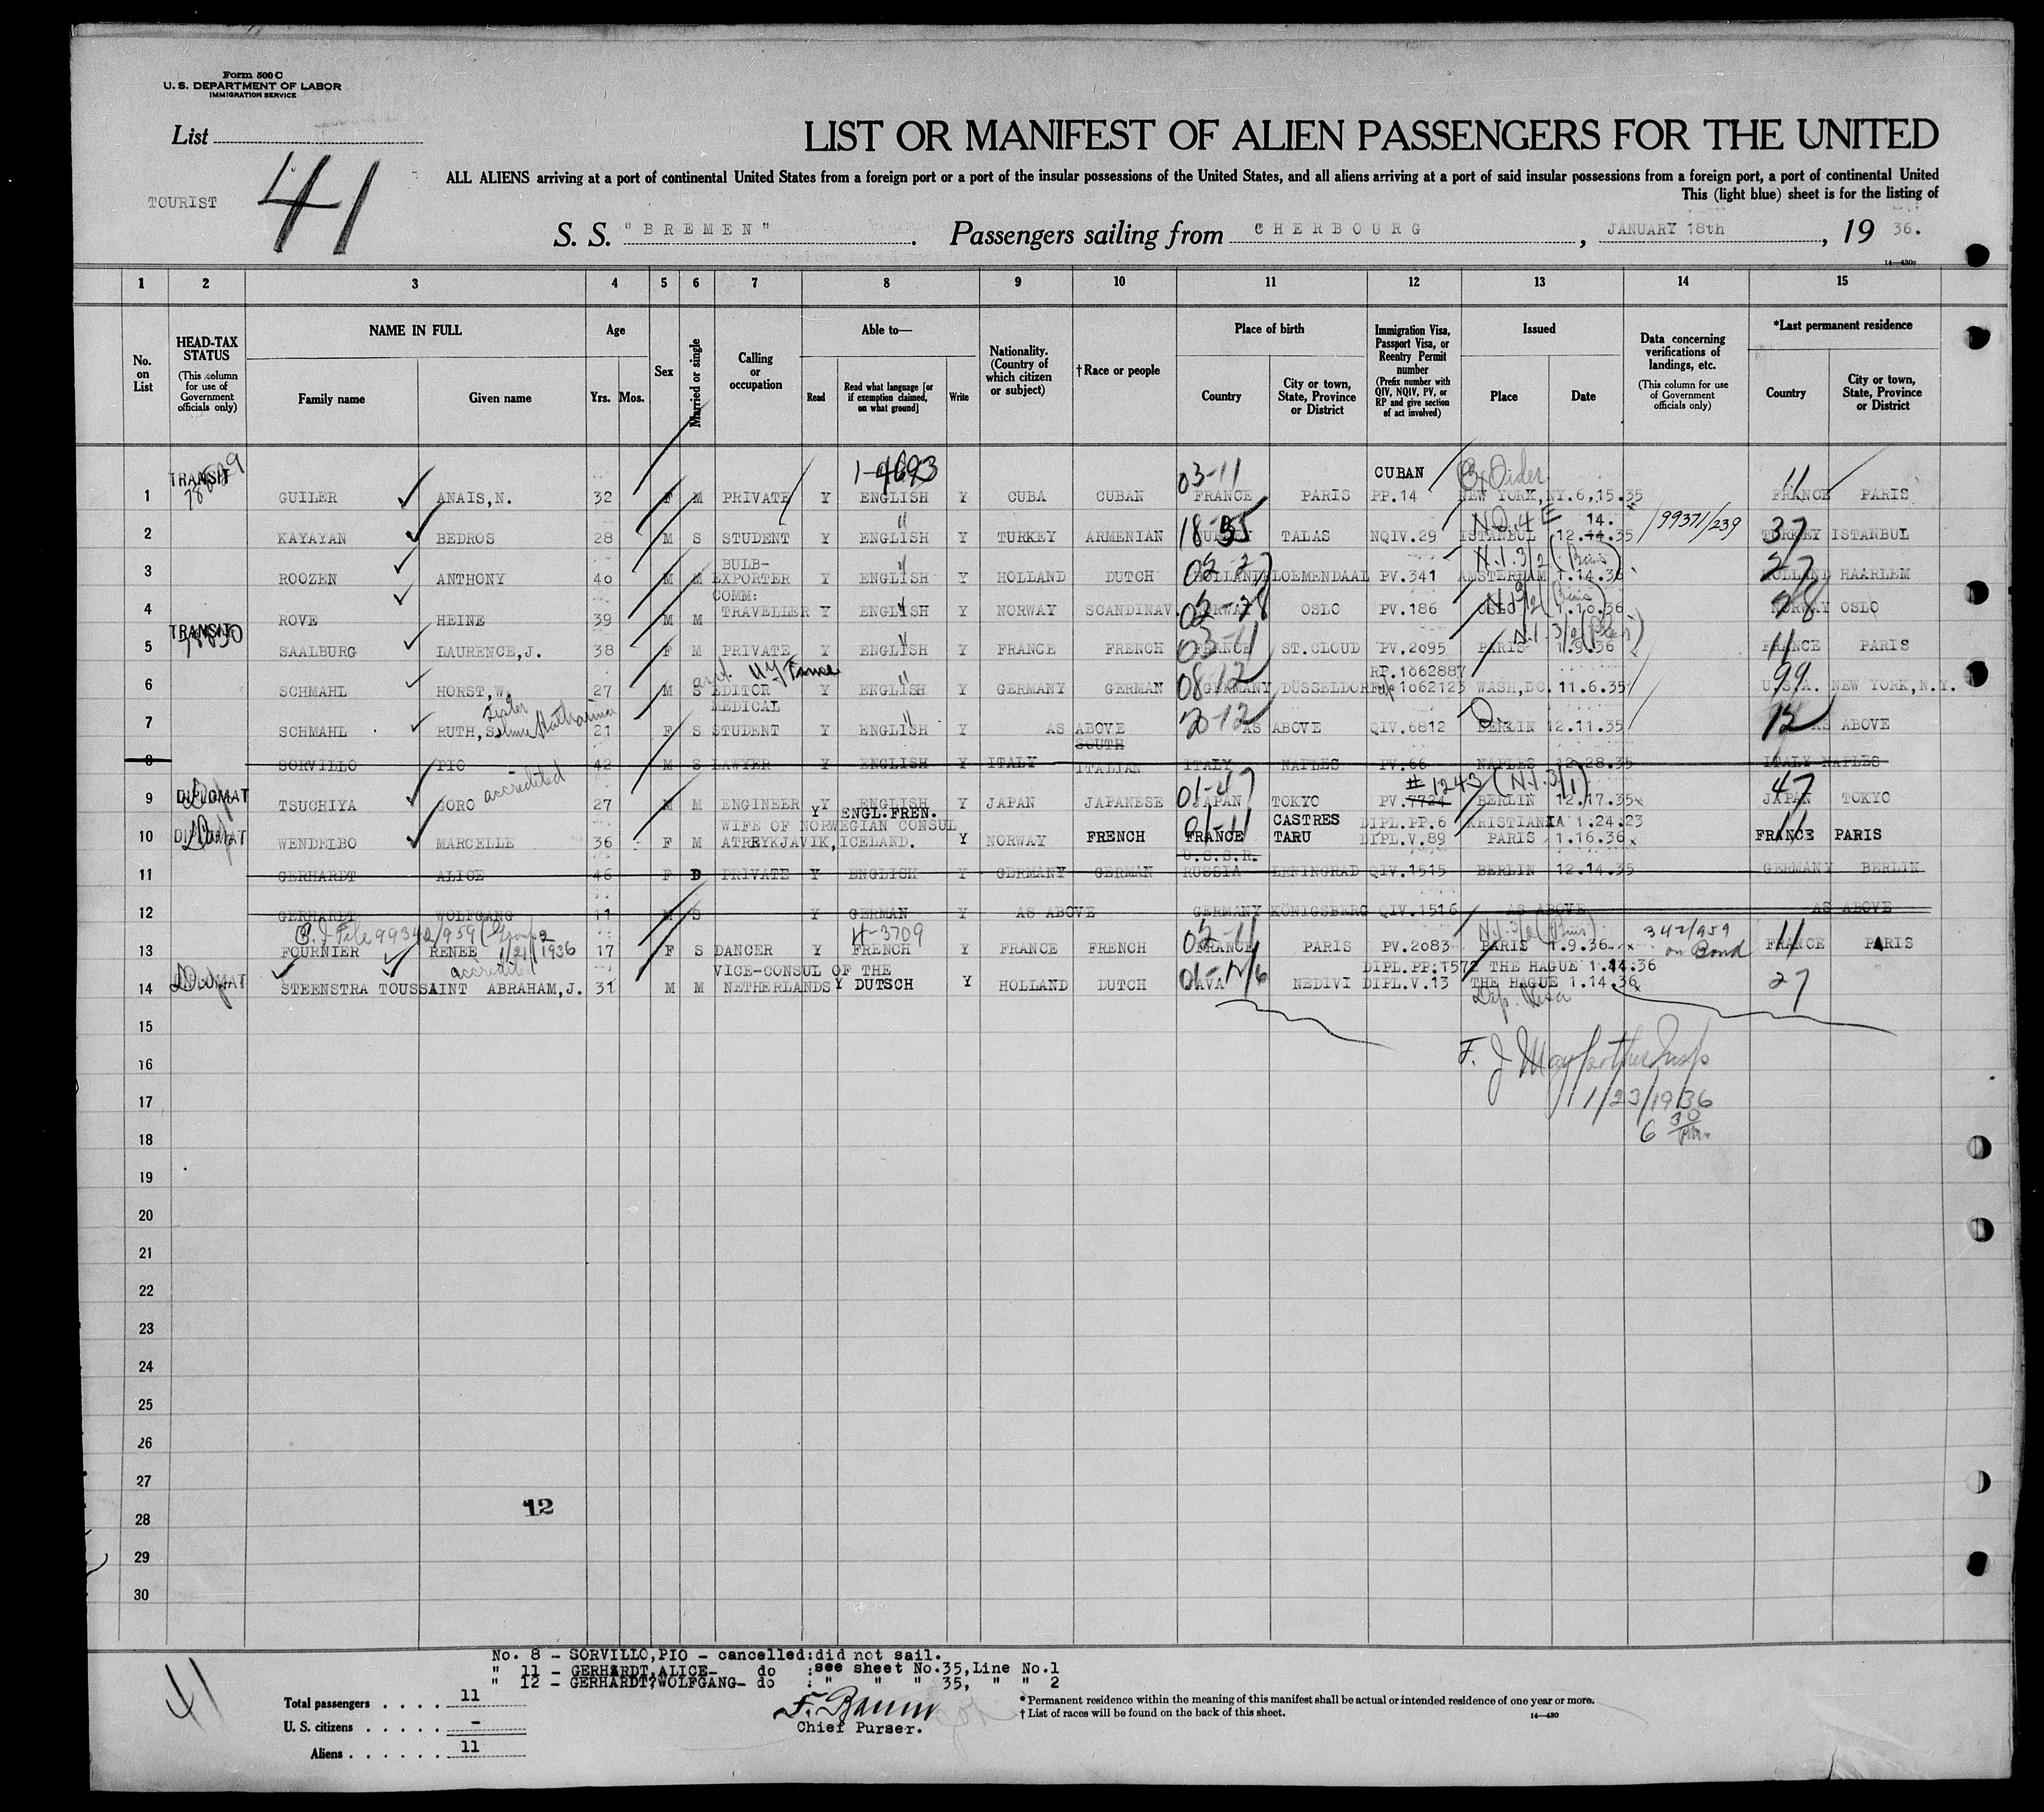 Form 500 C
U. S. DEPARTMENT OF LABOR
IMMIGRATION SERVICE
List
41
TOURIST
LIST OR MANIFEST OF ALIEN PASSENGERS FOR THE UNITED
ALL ALIENS arriving at a port of continental United States from a foreign port or a port of the insular possessions of the United States, and all aliens arriving at a port of said insular possessions from a foreign port, a port of continental United
This (light blue) sheet is for the listing of
S. S. "BREMEN" . Passengers sailing from CHERBOURG , JANUARY 18th , 19 36.
14—430c
1 2 3 4 5 6 7 8 9 10 11 12 13 14 15
No. on List
HEAD-TAX STATUS (This column for use of Government officials only)
NAME IN FULL
Family name Given name
Age
Yrs. Mos.
Sex
Married or single
Calling or occupation
Able to—
Read Read what language [or if exemption claimed, on what ground] Write
Nationality. (Country of which citizen or subject)
†Race or people
Place of birth
Country City or town, State, Province or District
Immigration Visa, Passport Visa, or Reentry Permit number (Prefix number with QIV, NQIV, PV, or RP and give section of act involved)
Issued
Place Date
Data concerning verifications of landings, etc. (This column for use of Government officials only)
*Last permanent residence
Country City or town, State, Province or District
TRANSIT 03-11 CUBAN 11
1 GUILER ANAIS,N. 32 F M PRIVATE Y ENGLISH Y CUBA CUBAN FRANCE PARIS PP.14 NEW YORK,NY.6,15.35 FRANCE PARIS
14. 99371/239 37
2 KAYAYAN BEDROS 28 M S STUDENT Y ENGLISH Y TURKEY ARMENIAN TALAS NQIV.29 ISTANBUL 12.14.35 TURKEY ISTANBUL
BULB- 27
3 ROOZEN ANTHONY 40 M M EXPORTER Y ENGLISH Y HOLLAND DUTCH HOLLAND BLOEMENDAAL PV.341 AMSTERDAM 1.14.36 HOLLAND HAARLEM
COMM: 28
4 ROVE HEINE 39 M M TRAVELLER Y ENGLISH Y NORWAY SCANDINAV. NORWAY OSLO PV.186 OSLO 1.10.36 NORWAY OSLO
TRANSIT 78830 03-11 11
5 SAALBURG LAURENCE,J. 38 F M PRIVATE Y ENGLISH Y FRANCE FRENCH FRANCE ST.CLOUD PV.2095 PARIS 1.9.36 FRANCE PARIS
08-12 RP.1062887 99
6 SCHMAHL HORST,W. 27 M S EDITOR Y ENGLISH Y GERMANY GERMAN GERMANY DÜSSELDORF 1062123 WASH,DC. 11.6.35 U.S.A. NEW YORK,N.Y.
Sister MEDICAL 20-12 12
7 SCHMAHL RUTH, Selma Katharina 21 F S STUDENT Y ENGLISH Y AS ABOVE AS ABOVE QIV.6812 BERLIN 12.11.35 AS ABOVE
SOUTH
8 SORVILLO PIO 42 M S LAWYER Y ENGLISH Y ITALY ITALIAN ITALY NAPLES PV.66 NAPLES 12.28.35 ITALY NAPLES
DIPLOMAT accredited 01-47 # 1243 (N.I.3/1) 47
9 TSUCHIYA SORO 27 M M ENGINEER Y ENGLISH Y JAPAN JAPANESE JAPAN TOKYO PV.7724 BERLIN 12.17.35 JAPAN TOKYO
Y ENGL.FREN.
DIPLOMAT WIFE OF NORWEGIAN CONSUL 01-11 CASTRES DIPL.PP.6 KRISTIANIA 1.24.23 11
10 WENDELBO MARCELLE 36 F M ATREYKJAVIK,ICELAND. Y NORWAY FRENCH FRANCE TARU DIPL.V.89 PARIS 1.16.36 FRANCE PARIS
U.S.S.R.
11 GERHARDT ALICE 46 F D PRIVATE Y ENGLISH Y GERMANY GERMAN RUSSIA LENINGRAD QIV.1515 BERLIN 12.14.35 GERMANY BERLIN
12 GERHARDT WOLFGANG 11 M S Y GERMAN Y AS ABOVE GERMANY KÖNIGSBERG QIV.1516 AS ABOVE AS ABOVE
4-3709 342/959
13 FOURNIER RENEE 17 F S DANCER Y FRENCH Y FRANCE FRENCH FRANCE PARIS PV.2083 PARIS 1.9.36 on Bond FRANCE PARIS
DIPLOMAT accredited VICE-CONSUL OF THE DIPL.PP:1572 THE HAGUE 1.14.36 27
14 STEENSTRA TOUSSAINT ABRAHAM,J. 31 M M NETHERLANDS Y DUTSCH Y HOLLAND DUTCH JAVA NEDIVI DIPL.V.13 THE HAGUE 1.14.36
Dip. Visa
15
16
1/23/1936
17
18
6 30
19
20
21
22
23
24
25
26
27
12
28
29
30
No. 8 - SORVILLO,PIO - cancelled:did not sail.
" 11 - GERHARDT,ALICE- do :see sheet No.35,Line No.1
" 12 - GERHARDT,WOLFGANG- do : " " " 35, " " 2
41
Total passengers . . . . 11
U. S. citizens . . . . . -
Aliens . . . . . . 11
F. Baum
Chief Purser.
* Permanent residence within the meaning of this manifest shall be actual or intended residence of one year or more.
† List of races will be found on the back of this sheet.
14—430